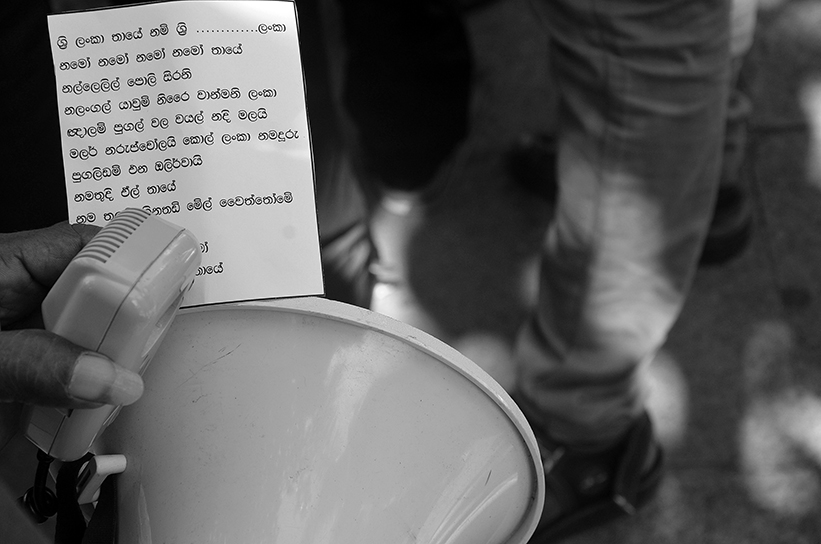 ශ්‍රි ලංකා තායේ නම් ශ්‍රි .............ලංකා
නමෝ නමෝ නමෝ නමෝ තායේ
නල්ලෙලිල් පොලි සිරනි
නලංගල් යාවුම් නිරෛ වාන්මනි ලංකා
ඥාලම් පුගල් වල වයල් නදි මලයි
මලර් නරුප්චෝලයි කොල් ලංකා නමදුරු
පුගලිඩම් එන ඔලිර්වායි
නමතුදි ඒල් තායේ
නම මේල් වෛත්තෝමේ
තායේ